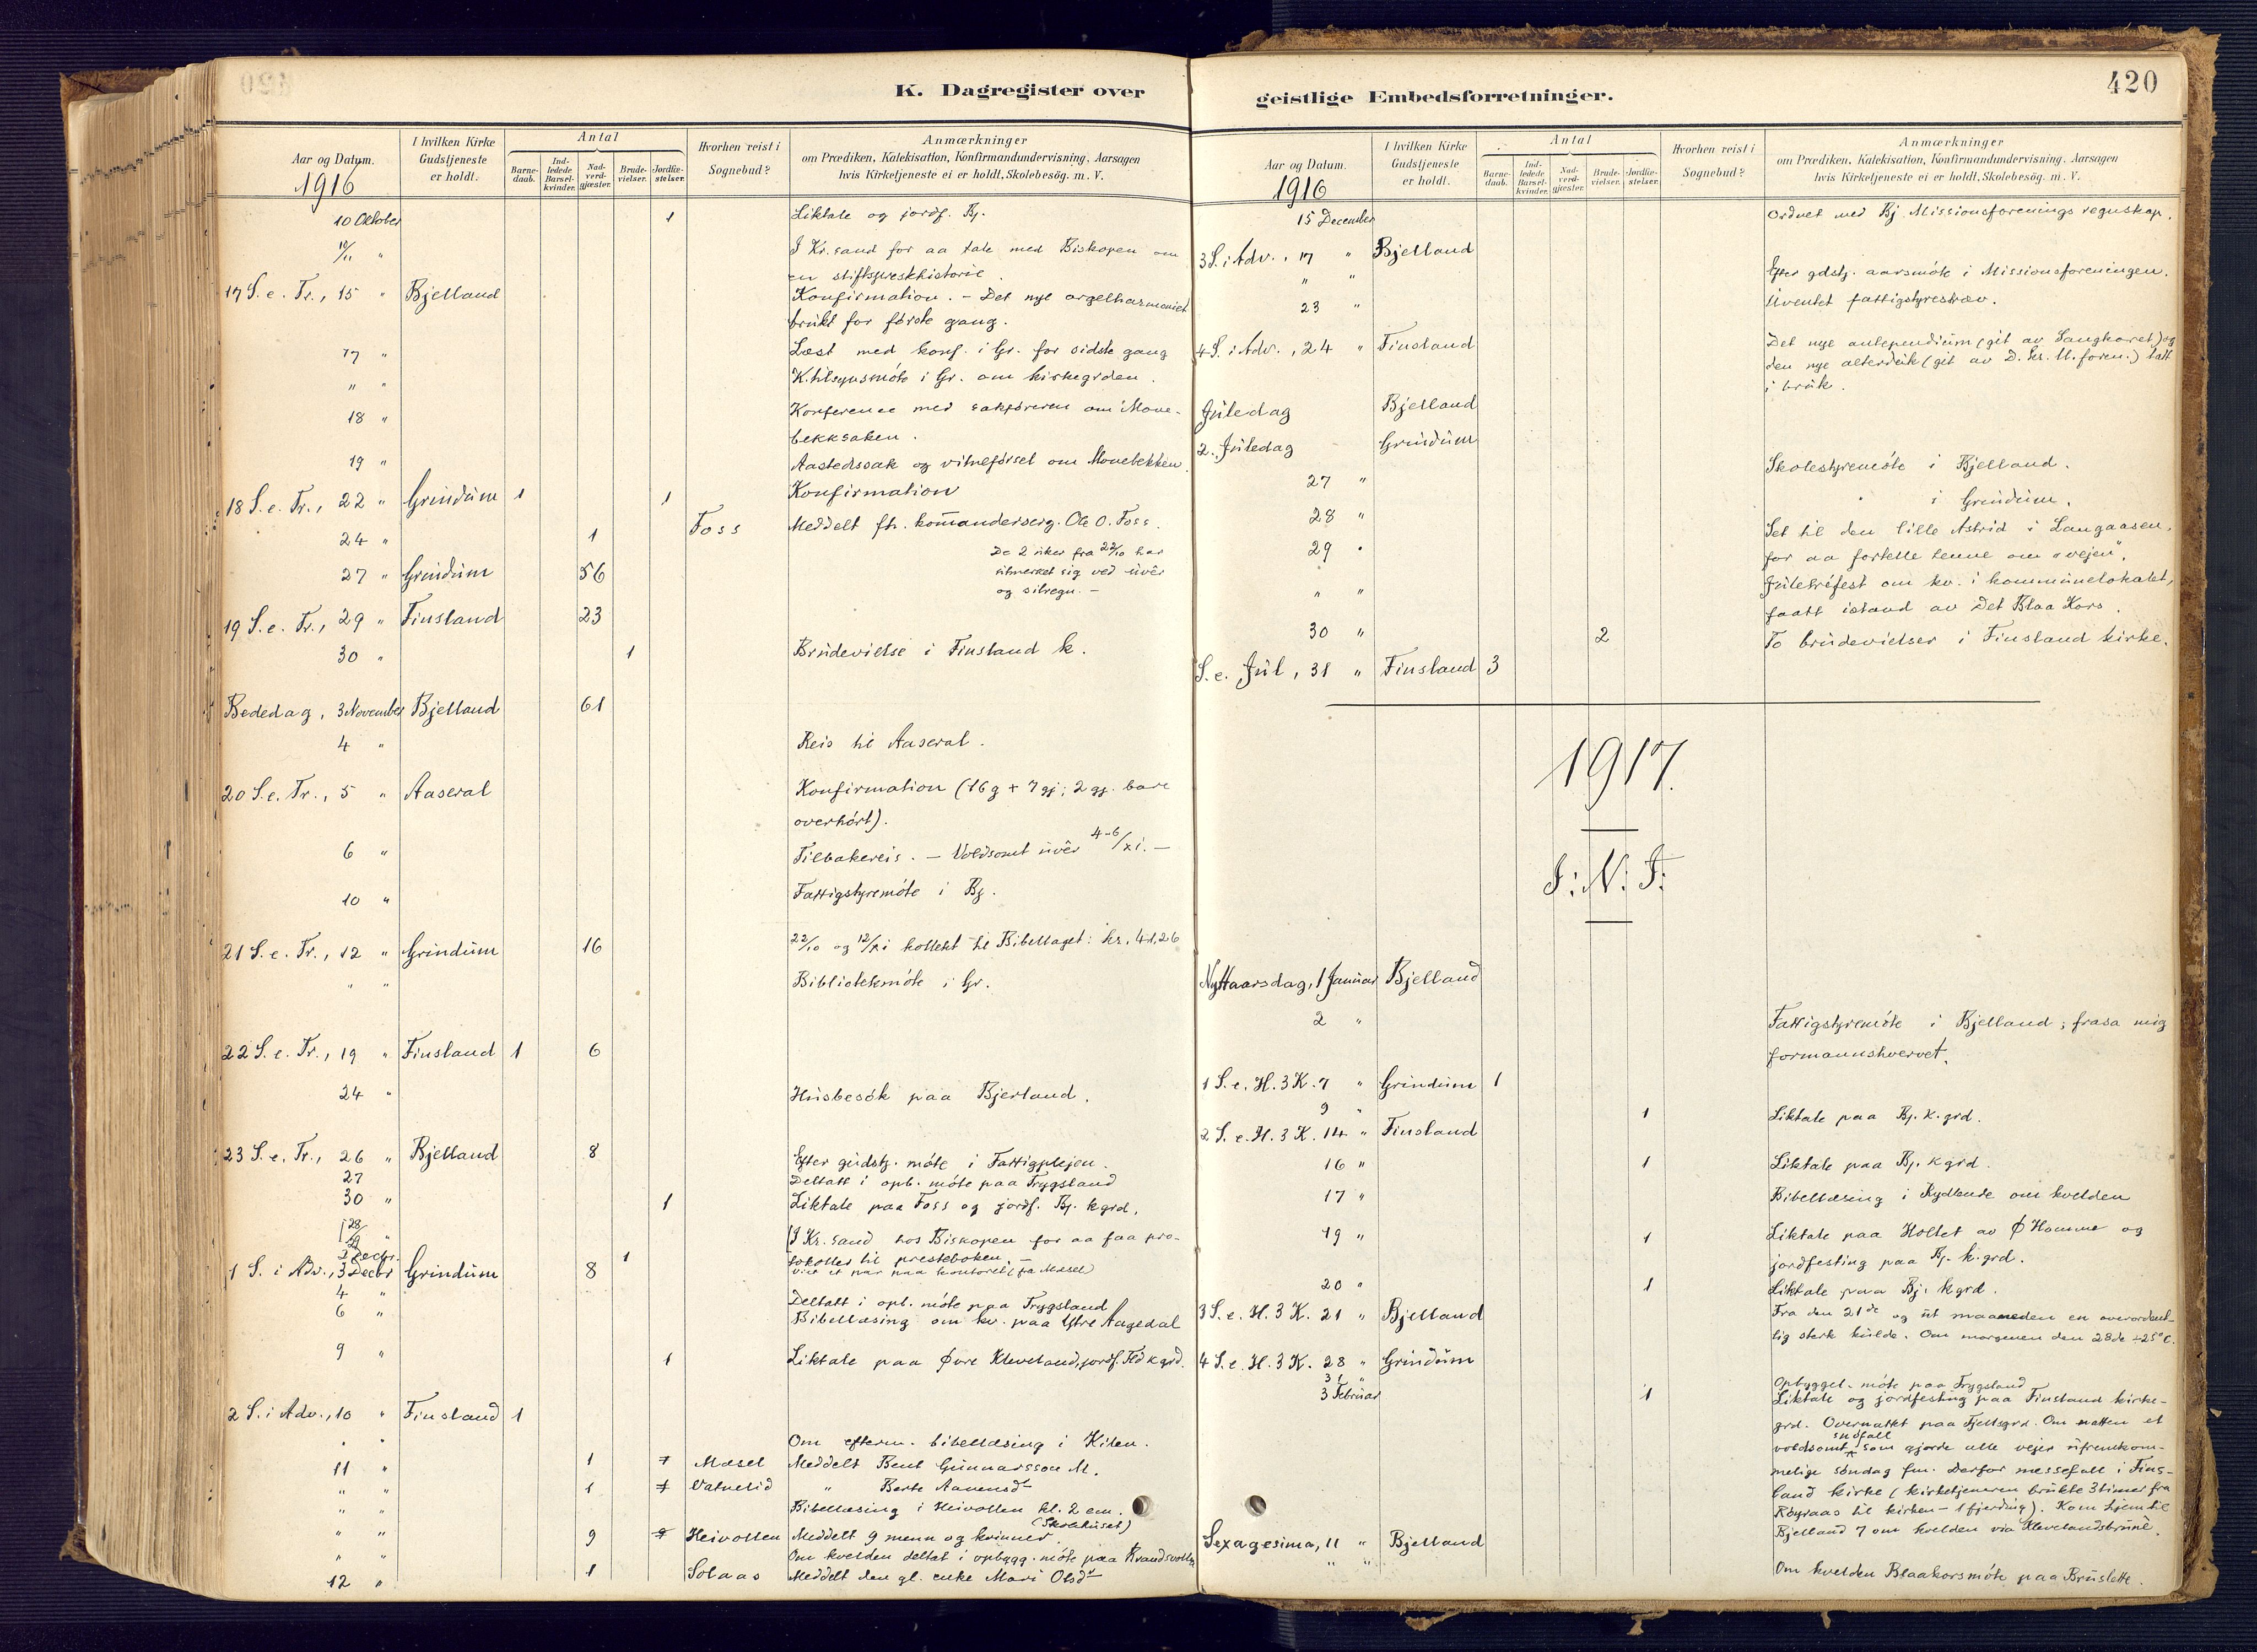 420
K. Dagregister over
Aar og Datum.
1916
I hvilken Kirke Gudstjeneste er holdt.
Antal
Barnedaab.
Indledede Barselkvinder.
Nadverdgjæster.
Brudevielser.
Jordfæstelser.
Hvorhen reist i Sognebud?
Anmærkninger
om Prædiken, Katekisation, Konfirmandundervisning, Aarsagen
hvis Kirketjeneste ei er holdt, Skolebesög. m. V.
10 Oktober 1 Liktale og jordf. Bj.
10/11 " I Kr.sand for aa tale med Biskopen om
en stiftspresthistorie.
17 S. e. Tr., 15 " Bjelland Konfirmation. – Det nye orgelharmoniet
brukt for förste gang.
17 " Læst med konf. i Gr. for sidste gang
" " K.tilsynsmöte i Gr. om kirkegrden.
18 " Konference med sakföreren om Mone-
bekksaken.
19 " Aastedssak og vitneförsel om Monebekken.
18 S. e. Tr., 22 " Grindum 1 1 Konfirmation
24 " 1 Foss Meddelt fh. komanderserg. Ole O. Foss.
27 " Grindum 56 De 2 uker fra 22/10 har
utmerket sig ved uvêr
og silregn. –
19 S. e. Tr., 29 " Finsland 23
30 " 1 Brudevielse i Finsland k.
Bededag, 3 November Bjelland 61
4 " Reis til Aaseral.
20 S. e. Tr., 5 " Aaseral Konfirmation (16 g + 7 gj; 2 gj. bare
overhört).
6 " Tilbakereis. – Voldsomt uvêr 4-6/xi. –
10 " Fattigstyremöte i Bj.
21 S. e. Tr., 12 " Grindum 16 22/10 og 12/xi kollekt til Bibellaget: kr. 41,26
" " Bibliotekmöte i Gr.
22 S. e. Tr., 19 " Finsland 1 6
24 " Husbesök paa Bjerland.
23 S. e. Tr., 26 " Bjelland 8 Efter gudstj. möte i Fattigplejen.
27 Deltatt i opb. möte paa Trygsland
30 " 1 Liktale paa Foss og jordf. Bj. kgrd.
28/29 " I Kr.sand hos Biskopen for aa faa pro-
tokoller til presteboken. –
2 Decbr. 1 viet et par paa kontoret (fra Mesel)
1 S. i Adv., 3 Decbr Grindum 8
4 " Deltatt i opb. möte paa Trygsland
6 " Bibellæsing om kv. paa Ytre Aagedal
9 " 1 Liktale paa Övre Kleveland, jordf. Fld kgrd.
2 S. i Adv., 10 " Finsland 1
" " Om efterm. bibellæsing i Kilen.
11 " 1 Mæsel Meddelt Bent Gunnarsson M.
" " 1 Vatnelid " Berte Aanensdt
" " Bibellæsing i Heivollen kl. 2 em.
(Skolehuset)
" " 9 Heivollen Meddelt 9 menn og kvinner.
" " Om kvelden deltat i opbygg. möte paa Brandsvollen
12 " 1 Solaas Meddelt den gl. enke Mari Olsdt
geistlige Embedsforretninger.
420
Aar og Datum.
1916
I hvilken Kirke Gudstjeneste er holdt.
Antal
Barnedaab.
Indledede Barselkvinder.
Nadverdgjæster.
Brudevielser.
Jordfæstelser.
Hvorhen reist i Sognebud?
Anmærkninger
om Prædiken, Katekisation, Konfirmandundervisning, Aarsagen
hvis Kirketjeneste ei er holdt, Skolebesög. m. V.
15 December Ordnet med Bj. Missionsforenings regnskap.
3 S. i Adv., 17 " Bjelland
" " Efter gdstj. aarsmöte i Missionsforeningen.
23 " Uventet fattigstyrestræv.
4 S. i Adv., 24 " Finsland Det nye antependium (git av Sangkoret) og
den nye alterduk (git av D. kr. U. foren.) tatt
i bruk.
Juledag Bjelland
2. Juledag Grindum
27 " Skolestyremöte i Bjelland.
28 " " i Grindum.
29 " Set til den lille Astrid i Langaasen,
for aa fortelle henne om "vejen".
" " Juletréfest om kv. i kommunelokalet,
faatt istand av Det Blaa Kors.
30 " 2 To brudevielser i Finsland kirke.
S. e. Jul, 31 " Finsland 3
1917.
I: N: J:
Nyttaarsdag, 1 Januar Bjelland
2 " Fattigstyremöte i Bjelland; frasa mig
formannshvervet.
1 S. e. H. 3 K. 7 " Grindum 1
9 " 1 Liktale paa Bj. k.grd.
2 S. e. H. 3 K. 14 " Finsland
16 " 1 Liktale paa Bj. kgrd.
17 " Bibellæsing i Rydlende om kvelden
19 " 1 Liktale paa Holtet av Ö Homme og
jordfesting paa Bj. k.grd.
20 " 1 Liktale paa Bj. kgrd.
3 S. e. H. 3 K. 21 " Bjelland Fra den 21de og ut maaneden en overordent-
lig sterk kulde. Om morgenen den 28de ÷25° C.
4 S. e. H. 3 K. 28 " Grindum
31 " Opbyggel. möte paa Trygsland
3 Februar 1 Liktale og jordfesting paa Finsland kirke-
grd. Overnattet paa Fjellsgrd. Om natten et
voldsomt snefall som gjorde alle vejer ufremkom-
melige söndag fm. Derfor messefall i Fins-
land kirke (kirketjeneren brukte 3 timer fra
Röyraas til kirken – 1 fjerding). Kom hjem til
Bjelland 7 om kvelden via Klevelandsbrune.
Sexagesima, 11 " Bjelland
" " Om kvelden Blaakorsmöte paa Bruslette.